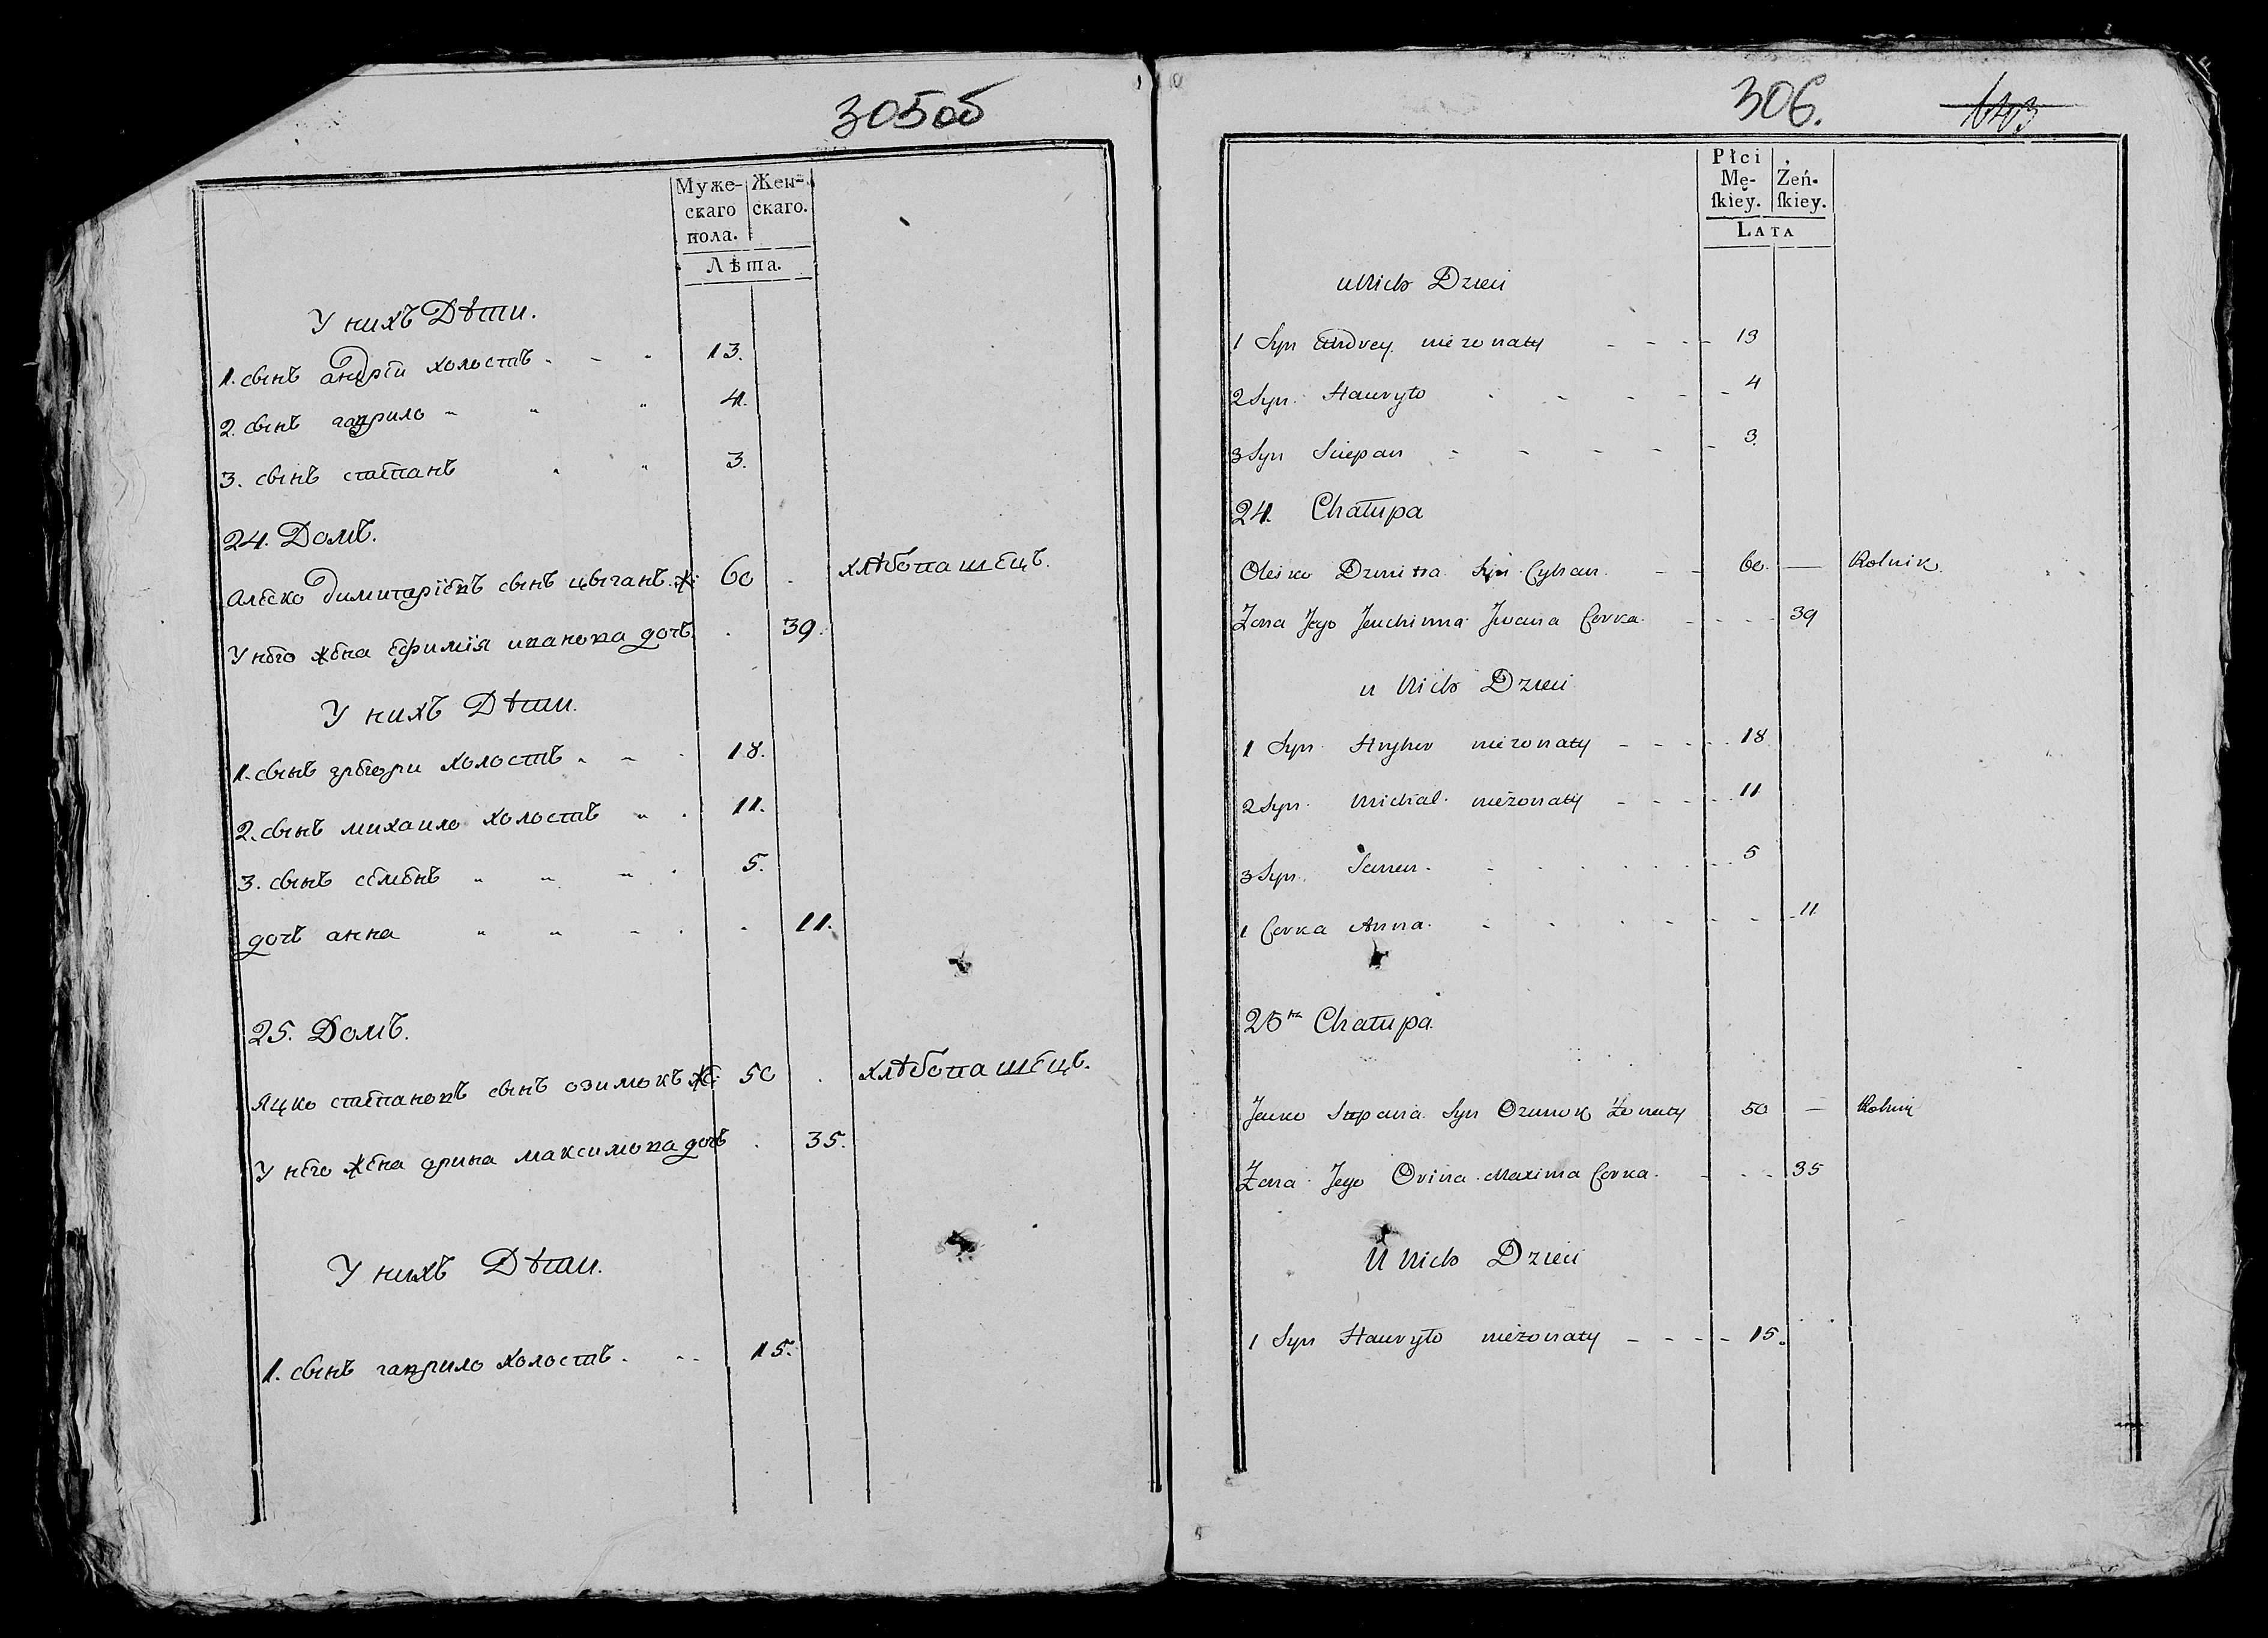 305об
Муже- Жен-
скаго скаго.
пола.
Лѣта.
У нихъ Дѣти.
1. сынъ андрѣй холостъ 13.
2. сынъ гаврило 4.
3. сынъ степанъ 3.
24. Домъ.
Алеско димитріевъ сынъ цыганъ. же: 60 хлѣбопашецъ.
У него жена ефимія иванова дочь. 39.
У нихъ Дѣти.
1. сынъ грегори холостъ 18.
2. сынъ михаило холостъ 11.
3. сынъ семенъ 5.
дочь анна 11.
25. Домъ.
Яцко степановъ сынъ озимокъ же: 50 хлѣбопашецъ.
У него жена орина максимова дочь 35.
У нихъ Дѣти.
1. сынъ гаврило холостъ. 15.
306. 1403
Płci
Mę- Żeń-
ſkiey. ſkiey.
LATA
u Nich Dzieci
1 Syn Andrey niezonaty 13
2 Syn Hauryło 4
3 Syn Sciepan 3.
24. Chałupa
Olesko Dzmitra Syn Cyhan. 60. — Rolnik.
Zona Jego Jeuchimia Jwana Corka. 39
u Nich Dzieci
1 Syn Hryhor niezonaty 18
2 Syn Michal niezonaty 11
3 Syn Semen. 5
1 Corka Anna. 11
25ta Chałupa.
Jacko Stepana Syn Ozimok Zonaty 50 — Rolnik
Zona Jego Orina Maxima Corka. 35
U Nich Dzieci
1 Syn Hauryło niezonaty 15.